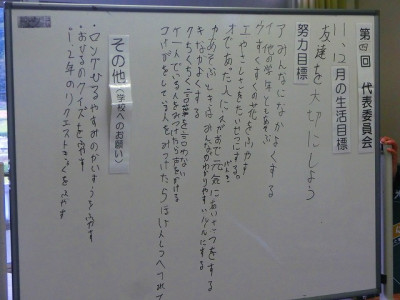 第四回 代表委員会
11、12月の生活目標
友達を大切にしよう
努力目標
ア みんなになかよくする
イ 他の学年ともあそぶ
ウ すくすくの花をふやす
エ やさしさをたいせつにする。
オ であった人にえがおで元気にあいさつをする
カ あそぶときはみんながわかりやすいルールにする
キ なかよくする
ク ちくちく言葉を言わない
ケ 一人でいる人をみつけたら声をかける
コ けがをしている人をみつけたらほけんしつへつれて
その他(学校へのお願い)
・ロングひるやすみのかいすうをふやす
・おひるのクイズをふやす
・1、2年のリクエストきょくをふやす